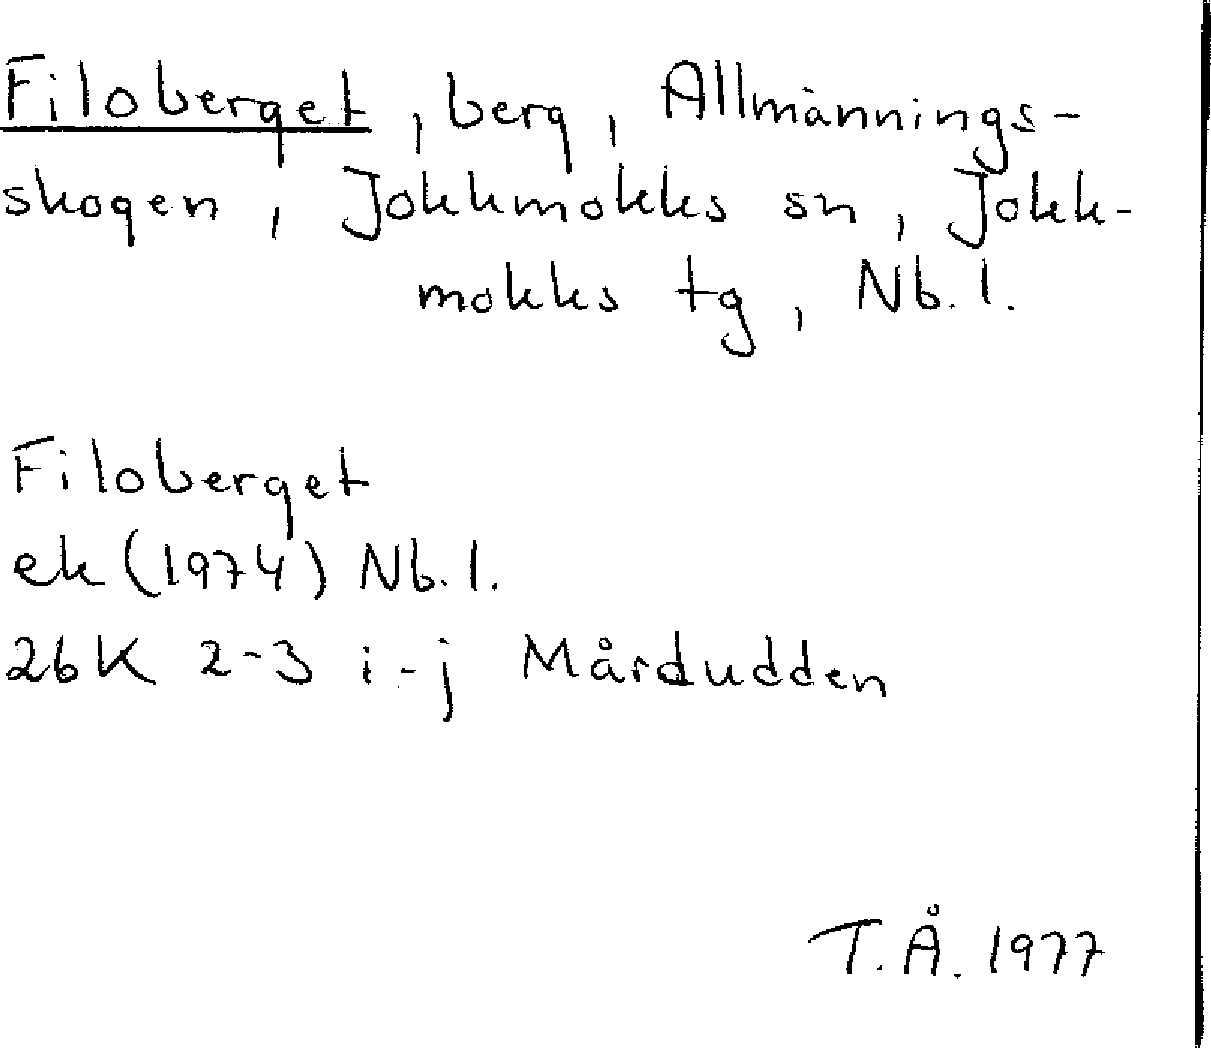 Filoberget, berg, Allmännings-
skogen, Jokkmokks sn, Jokk-
mokks tg, Nb. l.
Filoberget
ek (1974) Nb. l.
26K 2-3 i-j Mårdudden
T.Å. 1977